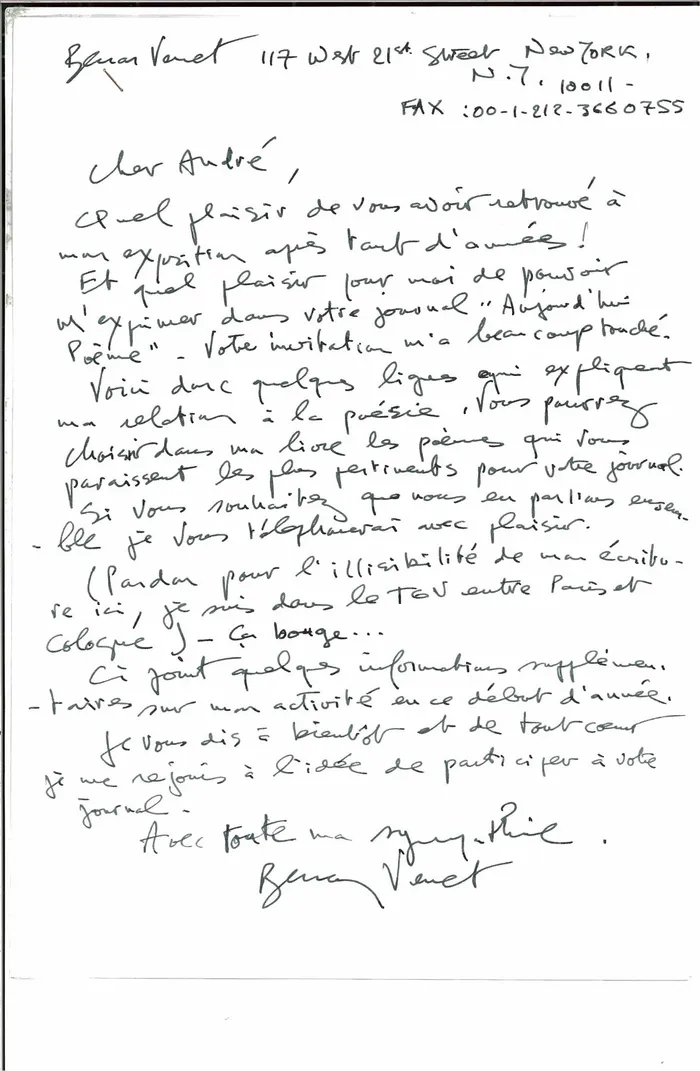 Bernar Venet 117 West 21st Street New York,
N.Y. 10011 -
FAX : 00-1-212-3660755
Cher André,
Quel plaisir de vous avoir retrouvé à
mon exposition après tant d'années !
Et quel plaisir pour moi de pouvoir
m'exprimer dans votre journal "Aujourd'hui
Poème" - Votre invitation m'a beaucoup touché.
Voici donc quelques lignes qui expliquent
ma relation à la poésie, vous pourrez
choisir dans mon livre les poèmes qui vous
paraissent les plus pertinents pour votre journal.
Si vous souhaitez que nous en parlions ensem-
- ble je vous téléphonerai avec plaisir.
(Pardon pour l'illisibilité de mon écritu-
re ici, je suis dans le TGV entre Paris et
Cologne) - ça bouge...
Ci joint quelques informations supplémen.
- taires sur mon activité en ce début d'année.
Je vous dis à bientôt et de tout cœur
je me réjouis à l'idée de participer à votre
journal -
Avec toute ma sympathie.
Bernar Venet